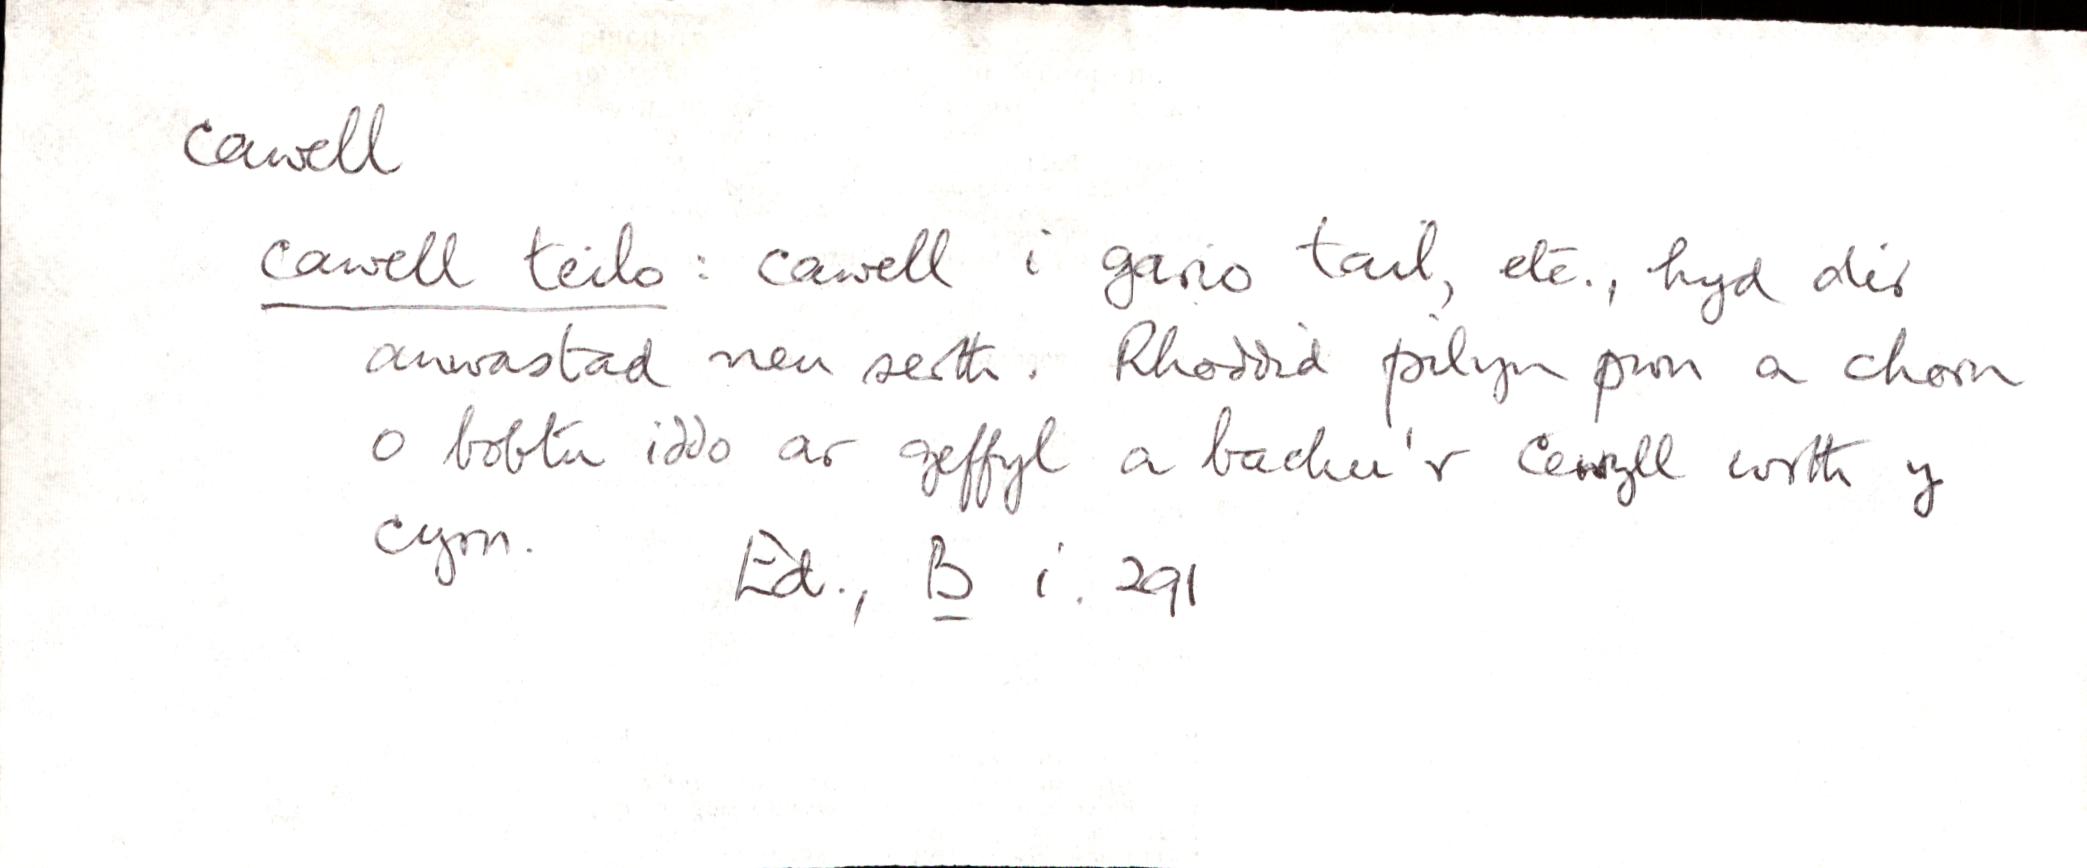 cawell
cawell teilo: cawell i gario tail, etc., hyd dir
anwastad neu serth. Rhoddid pilyn pwn a chorn
o bobtu iddo ar geffyl a bachu'r cewyll wrth y
cyrn.
Ed., B i. 291